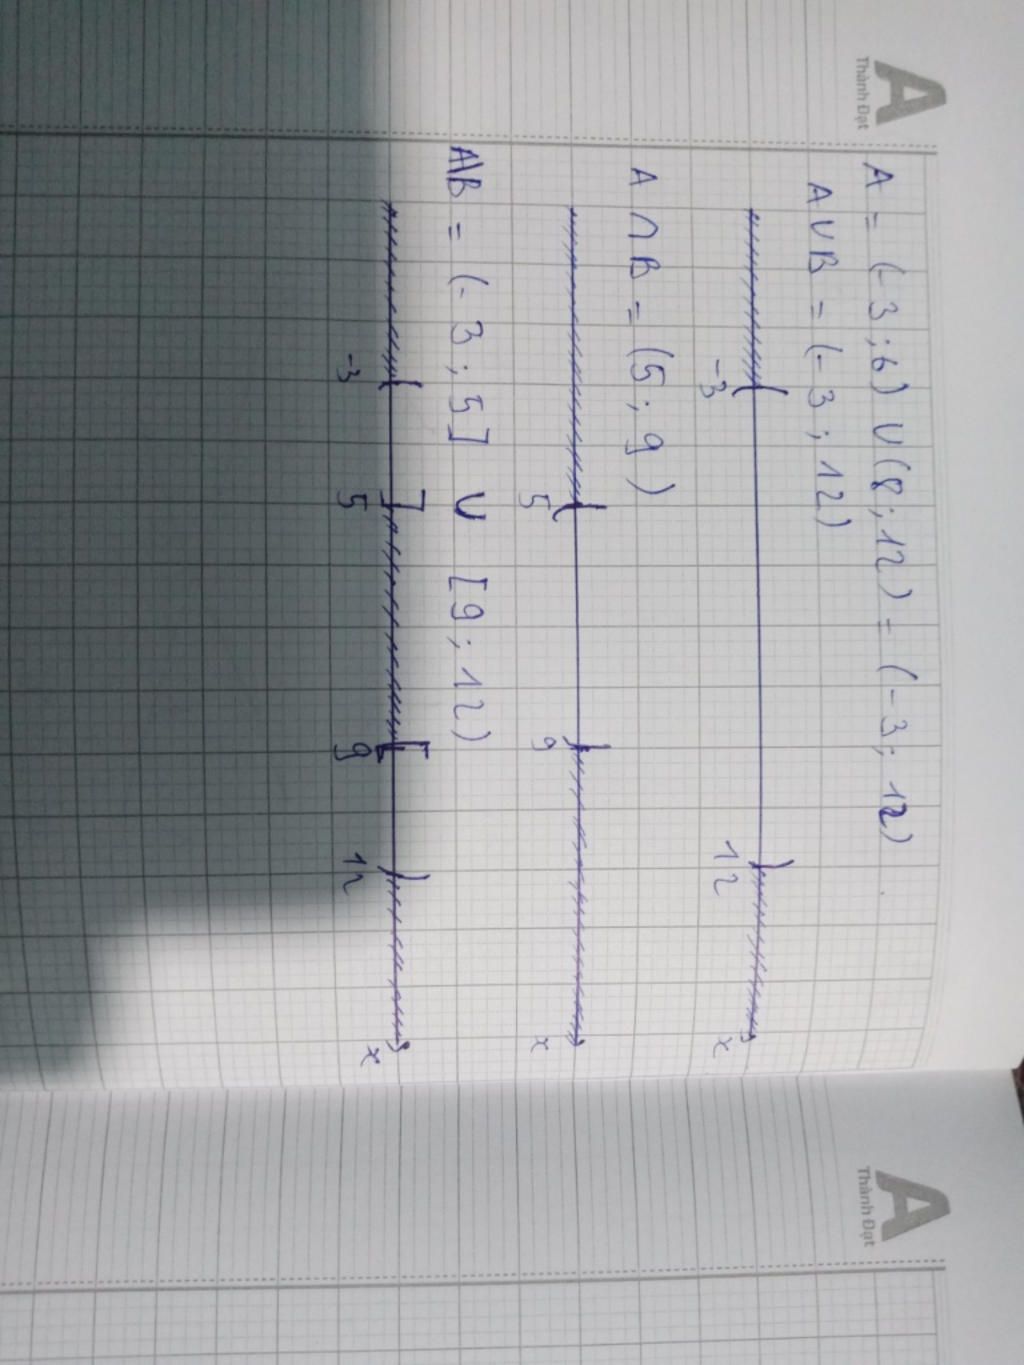 A
Thành Đạt
A = (-3;6) ∪ (8;12) = (-3;12).
A∪B = (-3;12)
-3 12 x
A ∩ B = (5;9)
5 9 x
A\B = (-3;5] ∪ [9;12)
-3 5 9 12 x
A
Thành Đạt